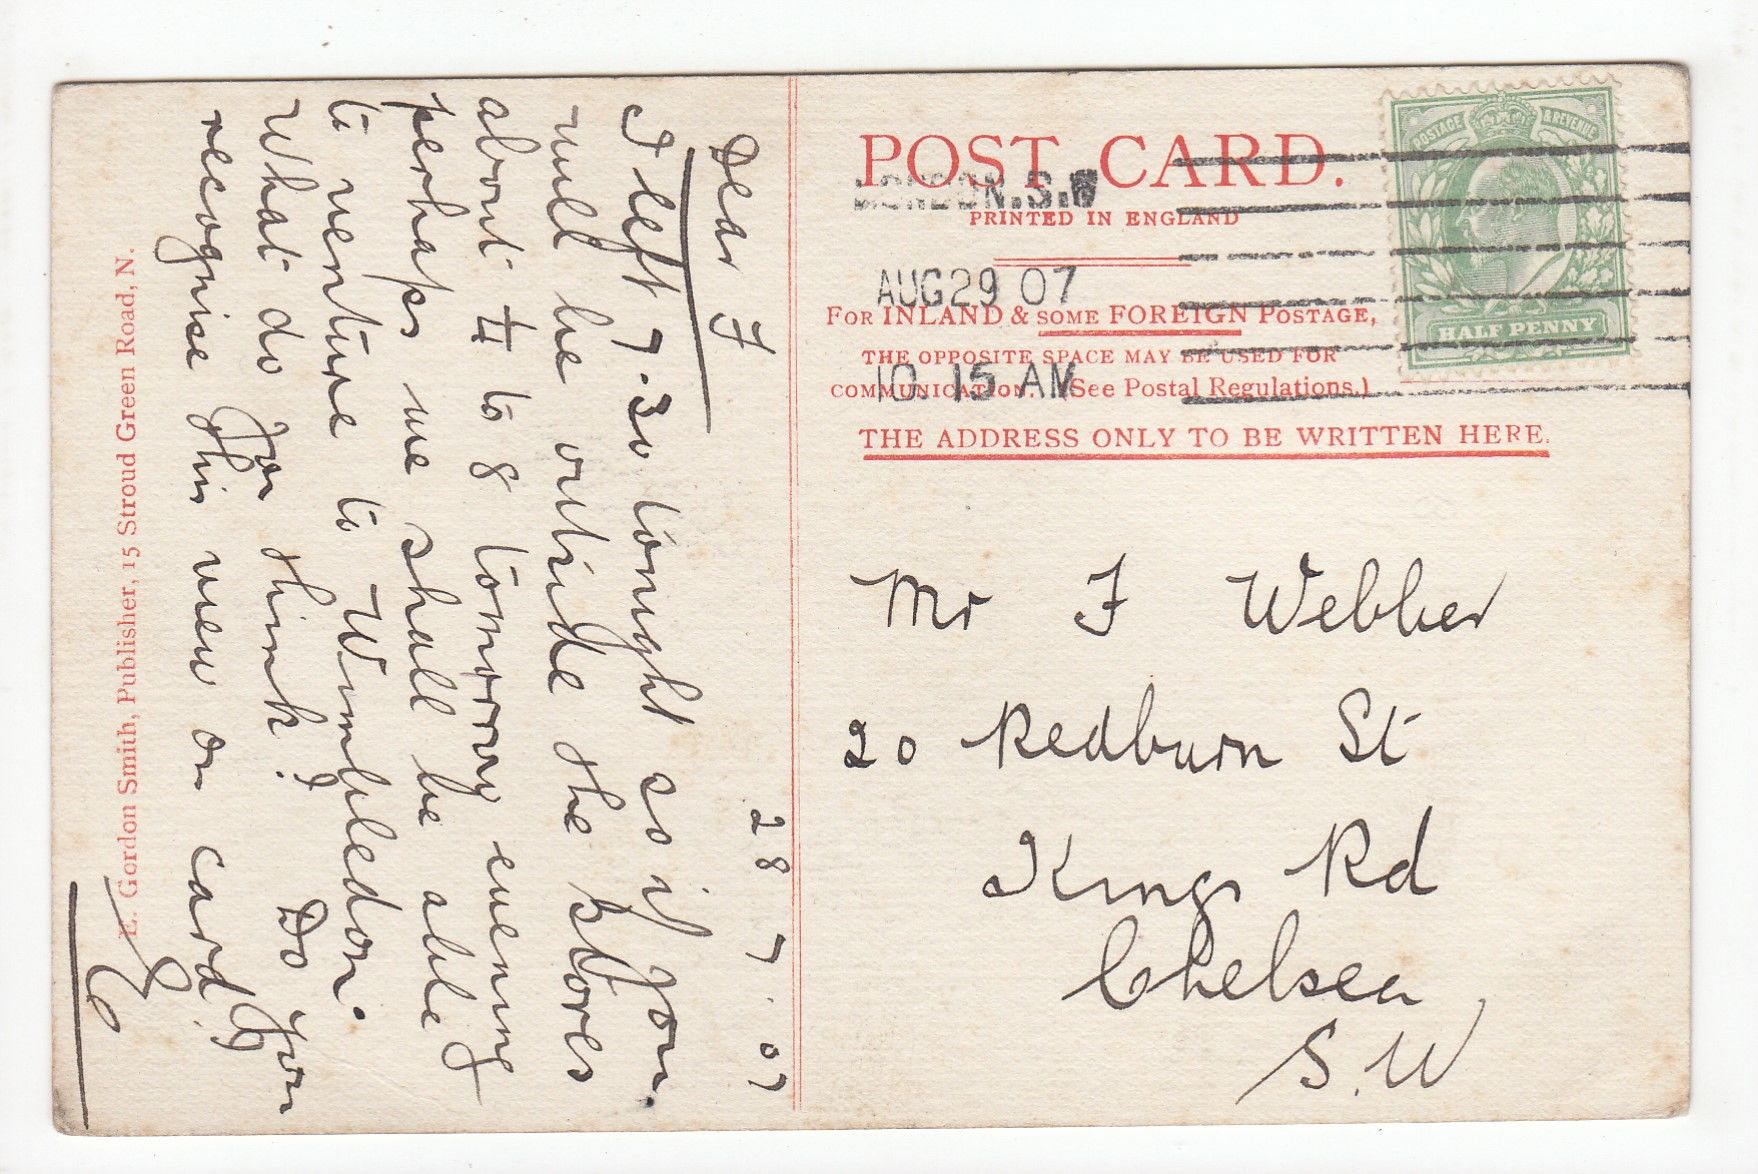 E. Gordon Smith, Publisher, 15 Stroud Green Road, N.
28 7. 07
Dear F
I left 7.30 tonight so if you
will be outside the stores
about ¼ to 8 tomorrow evening
perhaps we shall be able
to venture to Wimbledon.
What do you think? Do you
recognise this view on card?
POST CARD.
PRINTED IN ENGLAND
LONDON.S.W
AUG 29 07
10. 15 AM
POSTAGE & REVENUE
HALF PENNY
FOR INLAND & SOME FOREIGN POSTAGE,
THE OPPOSITE SPACE MAY BE USED FOR
COMMUNICATION. (See Postal Regulations.)
THE ADDRESS ONLY TO BE WRITTEN HERE.
Mr F Webber
20 Redburn St
Kings Rd
Chelsea
S.W